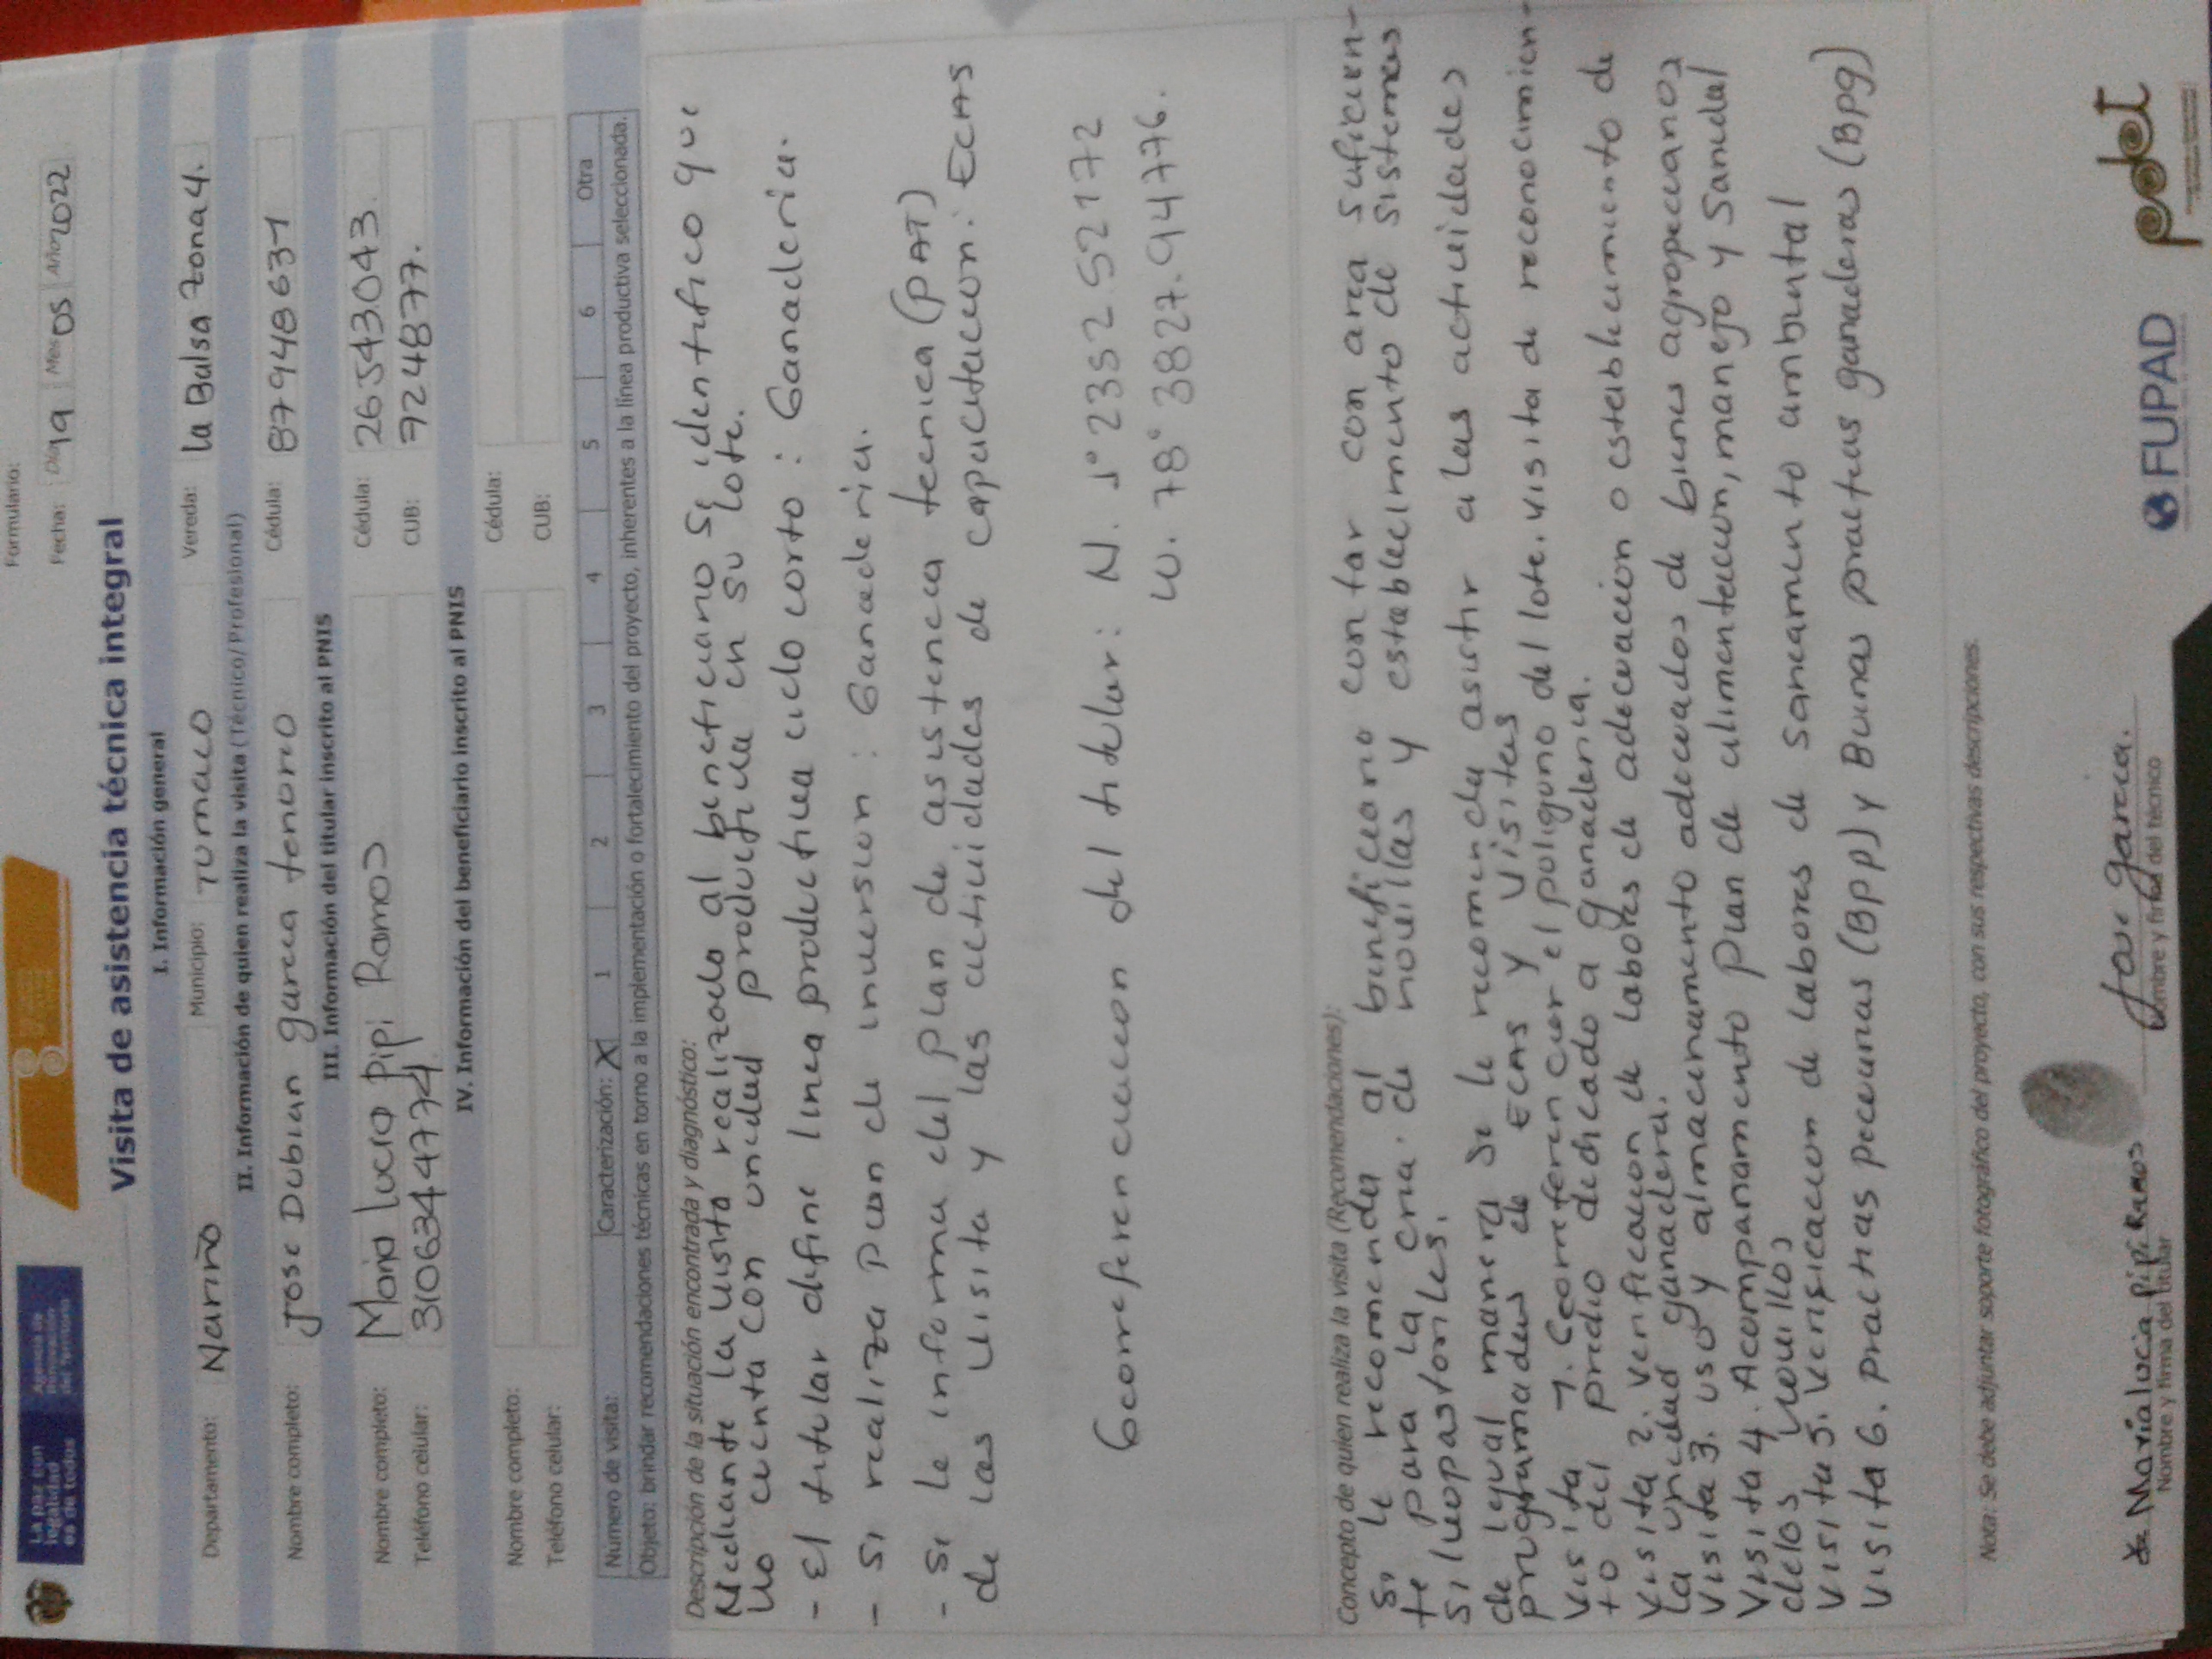 La paz con legalidad es de todos
Agencia de Renovación del Territorio
Formulario:
Fecha: Día 19 Mes 05 Año 2022
Visita de asistencia técnica integral
I. Información general
Departamento: Nariño Municipio: Tumaco Vereda: la Balsa zona 4.
II. Información de quien realiza la visita (Técnico/Profesional)
Nombre completo: Jose Dubian garcia tenorio Cédula: 87948631
III. Información del titular inscrito al PNIS
Nombre completo: Maria Lucia Pipi Ramos Cédula: 26543043.
Teléfono celular: 3106344774 CUB: 9224877.
IV. Información del beneficiario inscrito al PNIS
Nombre completo: Cédula:
Teléfono celular: CUB:
Número de visita: Caracterización: X 1 2 3 4 5 6 Otra
Objeto: brindar recomendaciones técnicas en torno a la implementación o fortalecimiento del proyecto, inherentes a la línea productiva seleccionada.
Descripción de la situación encontrada y diagnóstico:
Mediante la visita realizada al beneficiario se identifico que
no cuenta con unidad productiva en su lote.
- El titular define linea productiva ciclo corto: Ganaderia.
- se realiza plan de inversion: Ganaderia.
- se le informa del plan de asistencia tecnica (PAT)
de las visita y las actividades de capacitacion: ECAS
Georeferenciacion del titular: N. 1° 2352 52172
W. 78° 3827.94776.
Concepto de quien realiza la visita (Recomendaciones):
se le recomienda al beneficiario contar con area suficien-
te para la cria de novillas y establecimiento de sistemas
silvopastoriles.
de igual manera se le recomienda asistir a las actividades
programadas de ECAS y visitas
Visita 1. Georreferenciar el poligono del lote. visita de reconocimien-
to del predio dedicado a ganaderia.
Visita 2. verificacion de labores de adecuación o establecimiento de
la unidad ganadera.
Visita 3. uso y almacenamiento adecuados de bienes agropecuarios
Visita 4. Acompañamiento plan de alimentacion, manejo y Sanidad
de los novillos
Visita 5. verificacion de labores de saneamiento ambiental
Visita 6. practicas pecuarias (BPP) y Buenas practicas ganaderas (BPg)
Nota: Se debe adjuntar soporte fotográfico del proyecto, con sus respectivas descripciones.
Maria lucia Pipi Ramos
Nombre y firma del titular
Jose garcia.
Nombre y firma del técnico
FUPAD
pdet